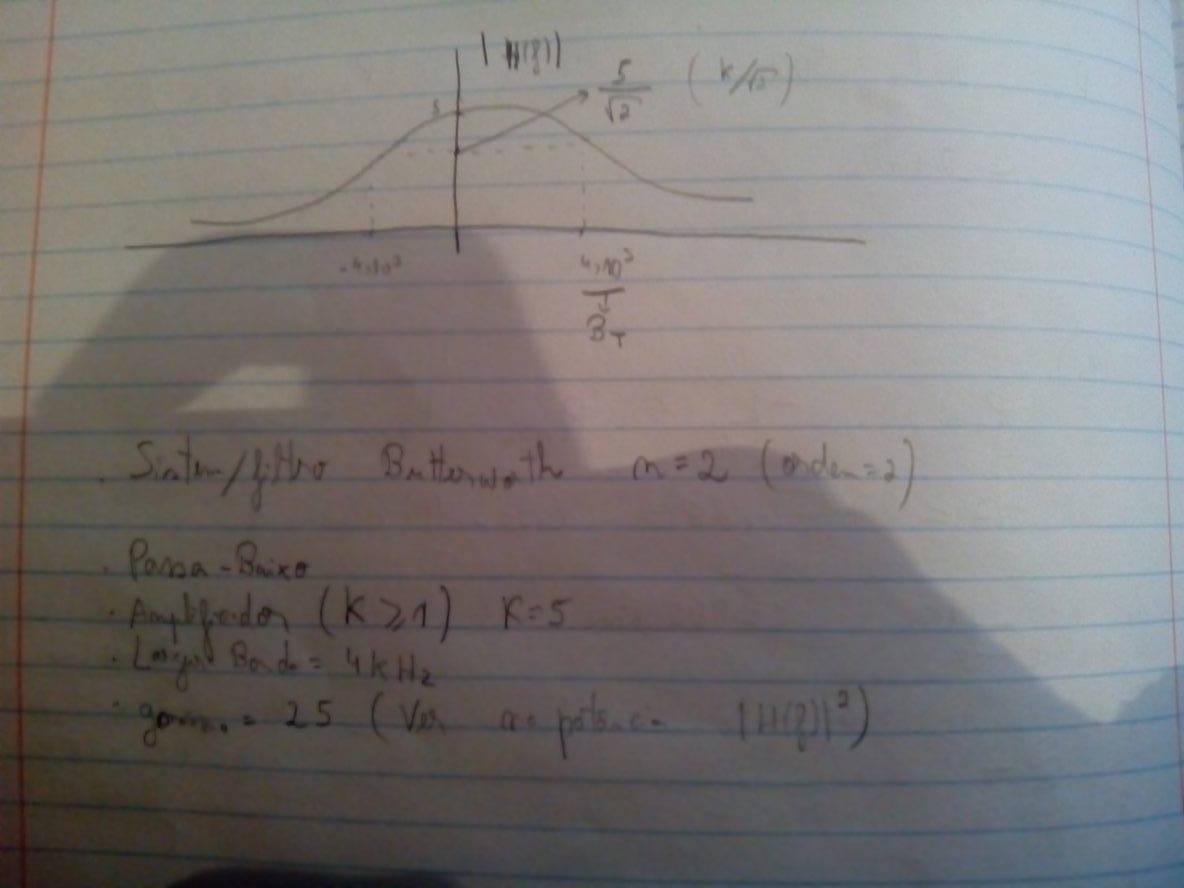 |H(f)|
5/√2 (K/√2)
5
-4×10³ 4×10³
B_T
. Sistem/filtro Butterworth n=2 (ordem=2)
. Passa-Baixo
. Amplificador (K ≥ 1) K=5
. Largura Banda = 4kHz
. = 25 (Ver na potência |H(f)|²)